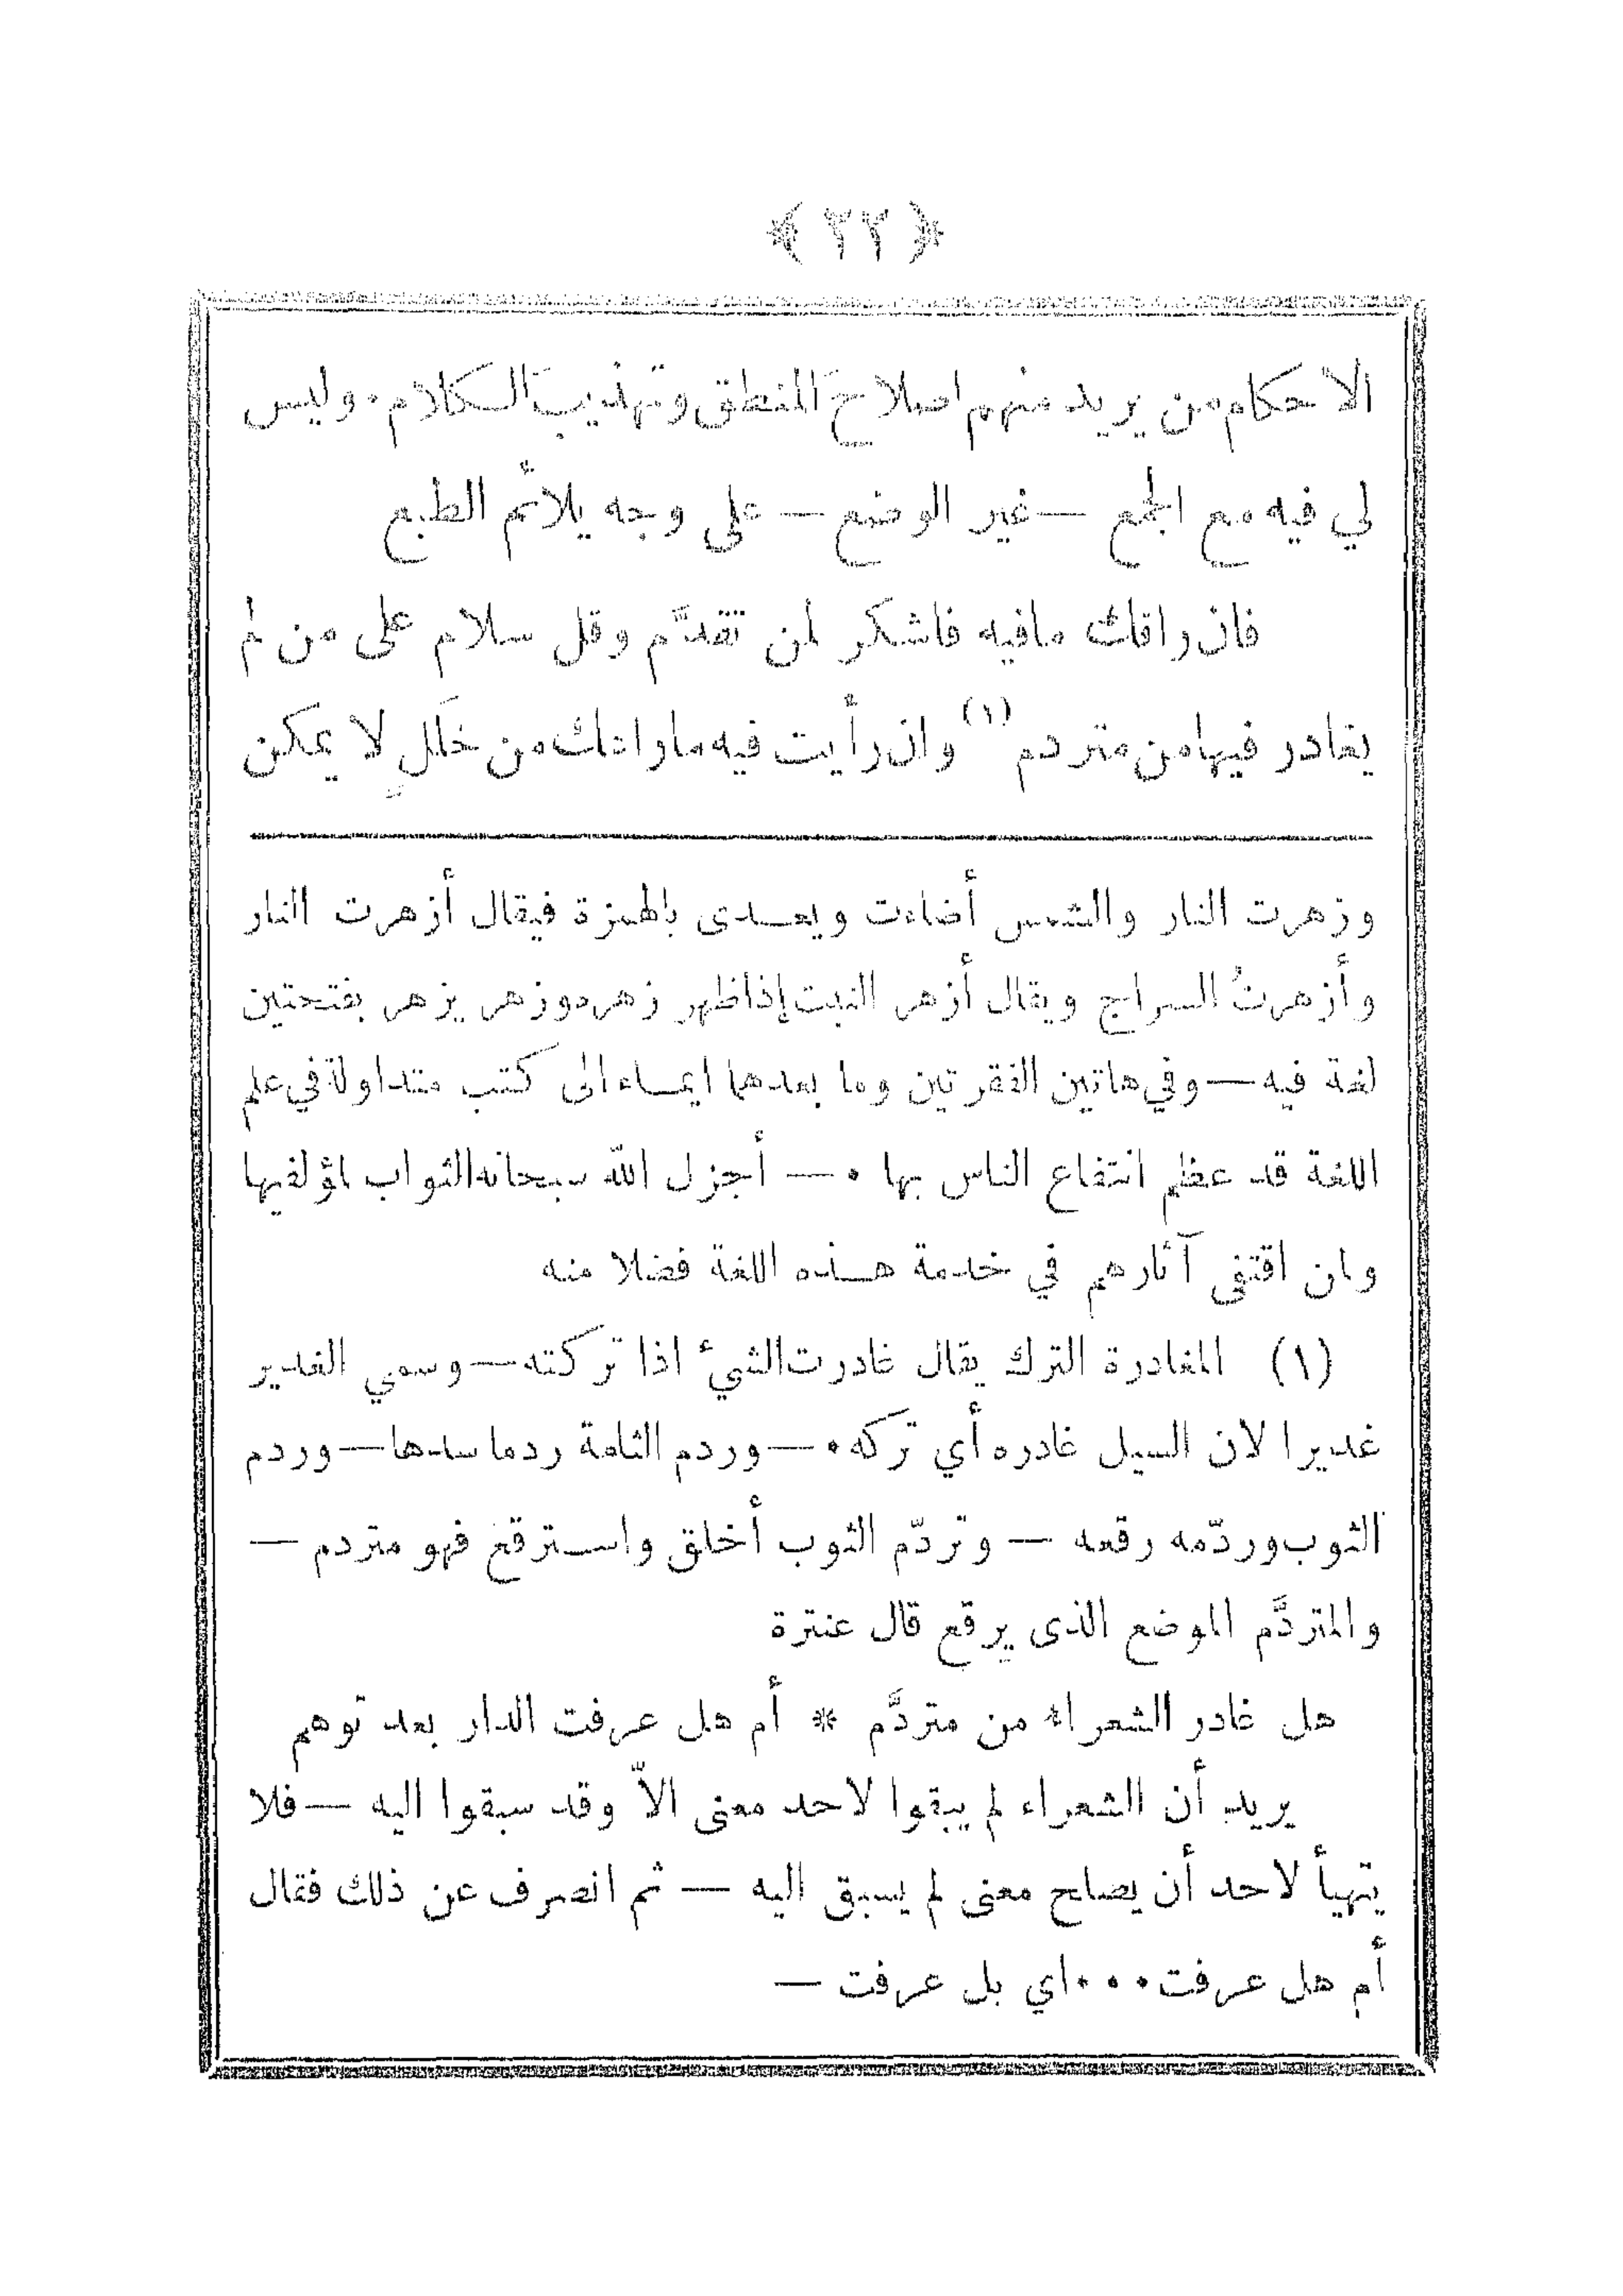 ﴿ ٢٢ ﴾
الاحكام من يريد منهم اصلاحَ المنطق وتهذيبَ الكلام ٠ وليس
لي فيه مع الجمع — غير الوضع — على وجه يلائم الطبع
فان راقك مافيه فاشكر لمن تقدَّم وقل سلام على من لم
يغادر فيها من متردم (١) وان رأيت فيه ماراعك من خَلَلٍ لا يمكن
وزهرت النار والشمس أضاءت ويعدى بالهمزة فيقال أزهرت النار
وأزهرتُ السراج ويقال أزهر النبت إذا ظهر زهره وزهر يزهر بفتحتين
لغة فيه — وفي هاتين الفقرتين وما بعدهما ايماء الى كتب متداولة في علم
اللغة قد عظم انتفاع الناس بها ٠ — أجزل الله سبحانه الثواب لمؤلفيها
ولمن اقتفى آثارهم في خدمة هذه اللغة فضلا منه
(١) المغادرة الترك يقال غادرت الشيء اذا تركته — وسمي الغدير
غديرا لان السيل غادره أي تركه ٠ — وردم الثلمة ردما سدها — وردم
الثوب وردّمه رقعه — وتردّم الثوب أخلق واسترقع فهو متردم —
والمتردَّم الموضع الذى يرقع قال عنترة
هل غادر الشعراء من متردَّم * أم هل عرفت الدار بعد توهم
يريد أن الشعراء لم يبقوا لاحد معنى الاّ وقد سبقوا اليه — فلا
يتهيأ لاحد أن يصلح معنى لم يسبق اليه — ثم انصرف عن ذلك فقال
أم هل عرفت ٠ ٠ ٠ اي بل عرفت —